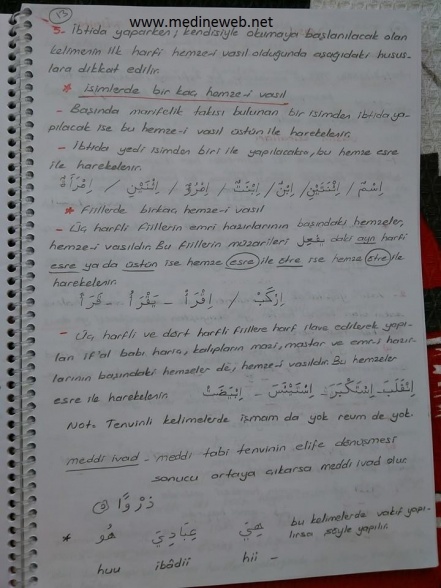 13
www.medineweb.net
5- İbtida yaparken; kendisiyle okumaya başlanılacak olan
kelimenin ilk harfi hemze-i vasıl olduğunda aşağıdaki husus-
lara dikkat edilir.
* isimlerde bir kaç hemze-i vasıl
- Başında marifelik takısı bulunan bir isimden ibtida ya-
pılacak ise bu hemze-i vasıl üstün ile harekelenir.
- İbtida yedi isimden biri ile yapılacaksa, bu hemze esre
ile harekelenir.
اِسْمٌ / اِثْنَتَيْنِ / اِبْنٌ / اِبْنَتٌ / اِمْرُؤٌ / اِثْنَيْنِ / اِمْرَأَةٌ
* Fiillerde birkaç hemze-i vasıl
- Üç harfli fiillerin emri hazırlarının başındaki hemzeler,
hemze-i vasıldır. Bu fiillerin müzarileri يفعل daki ayn harfi
esre ya da üstün ise hemze esre ile ötre ise hemze ötre ile
harekelenir.
اِرْكَبْ / اِقْرَأْ - يَقْرَأُ - قَرَأَ
- Üç harfli ve dört harfli fiillere harf ilave edilerek yapı-
lan if'al babı hariç, kalıpların mazi, mastar ve emr-i hazır-
larının başındaki hemzeler de, hemze-i vasıldır. Bu hemzeler
esre ile harekelenir. اِنْقَلَبَ - اِسْتَكْبَرَ - اِسْتَبْشَرَ - اِبْيَضَّتْ
Not. Tenvinli kelimelerde işmam da yok revm de yok.
meddi ivad - meddi tabi tenvinin elife dönüşmesi
sonucu ortaya çıkarsa meddi ivad olur.
ذَرْوًا
* هُو عِبَادِيَ هِيَ bu kelimelerde vakıf yapı-
lırsa şöyle yapılır.
huu ibâdii hii -